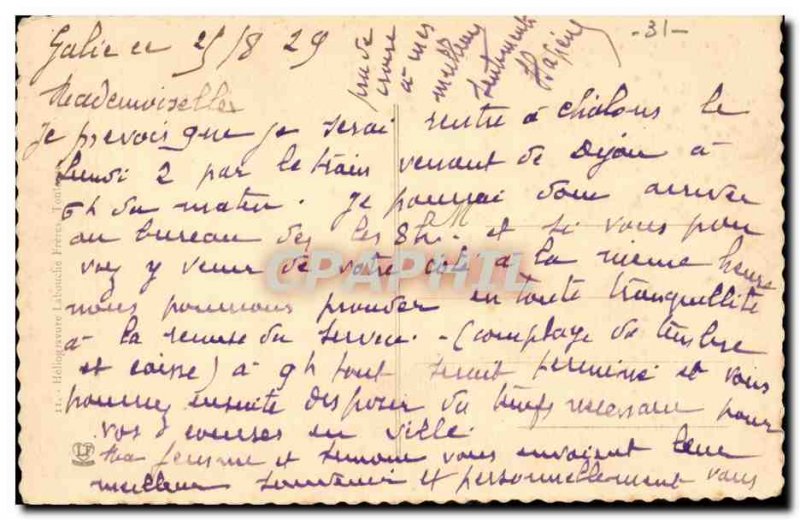 25/8 29
-31-
Mademoiselle
Je prevois que je serai rentré à Chalons le
lundi 2 par le train venant de Dijon à
6h du matin. Je pourrai donc arriver
au bureau dès les 8h. et si vous pou
vez y venir de votre coté à la même heure
nous pourrons proceder en toute tranquillité
à la remise du service. - (comptage de timbre
et caisse) à 9h tout serait terminé et vous
pourrez ensuite disposer du temps necessaire pour
vos courses en ville.
Ma femme et Simone vous envoient leur
meilleur souvenir et personnellement vous
prie de
croire
à mes
meilleurs
sentiments
CPAPHIL
11 - Héliogravure Labouche Frères
LF